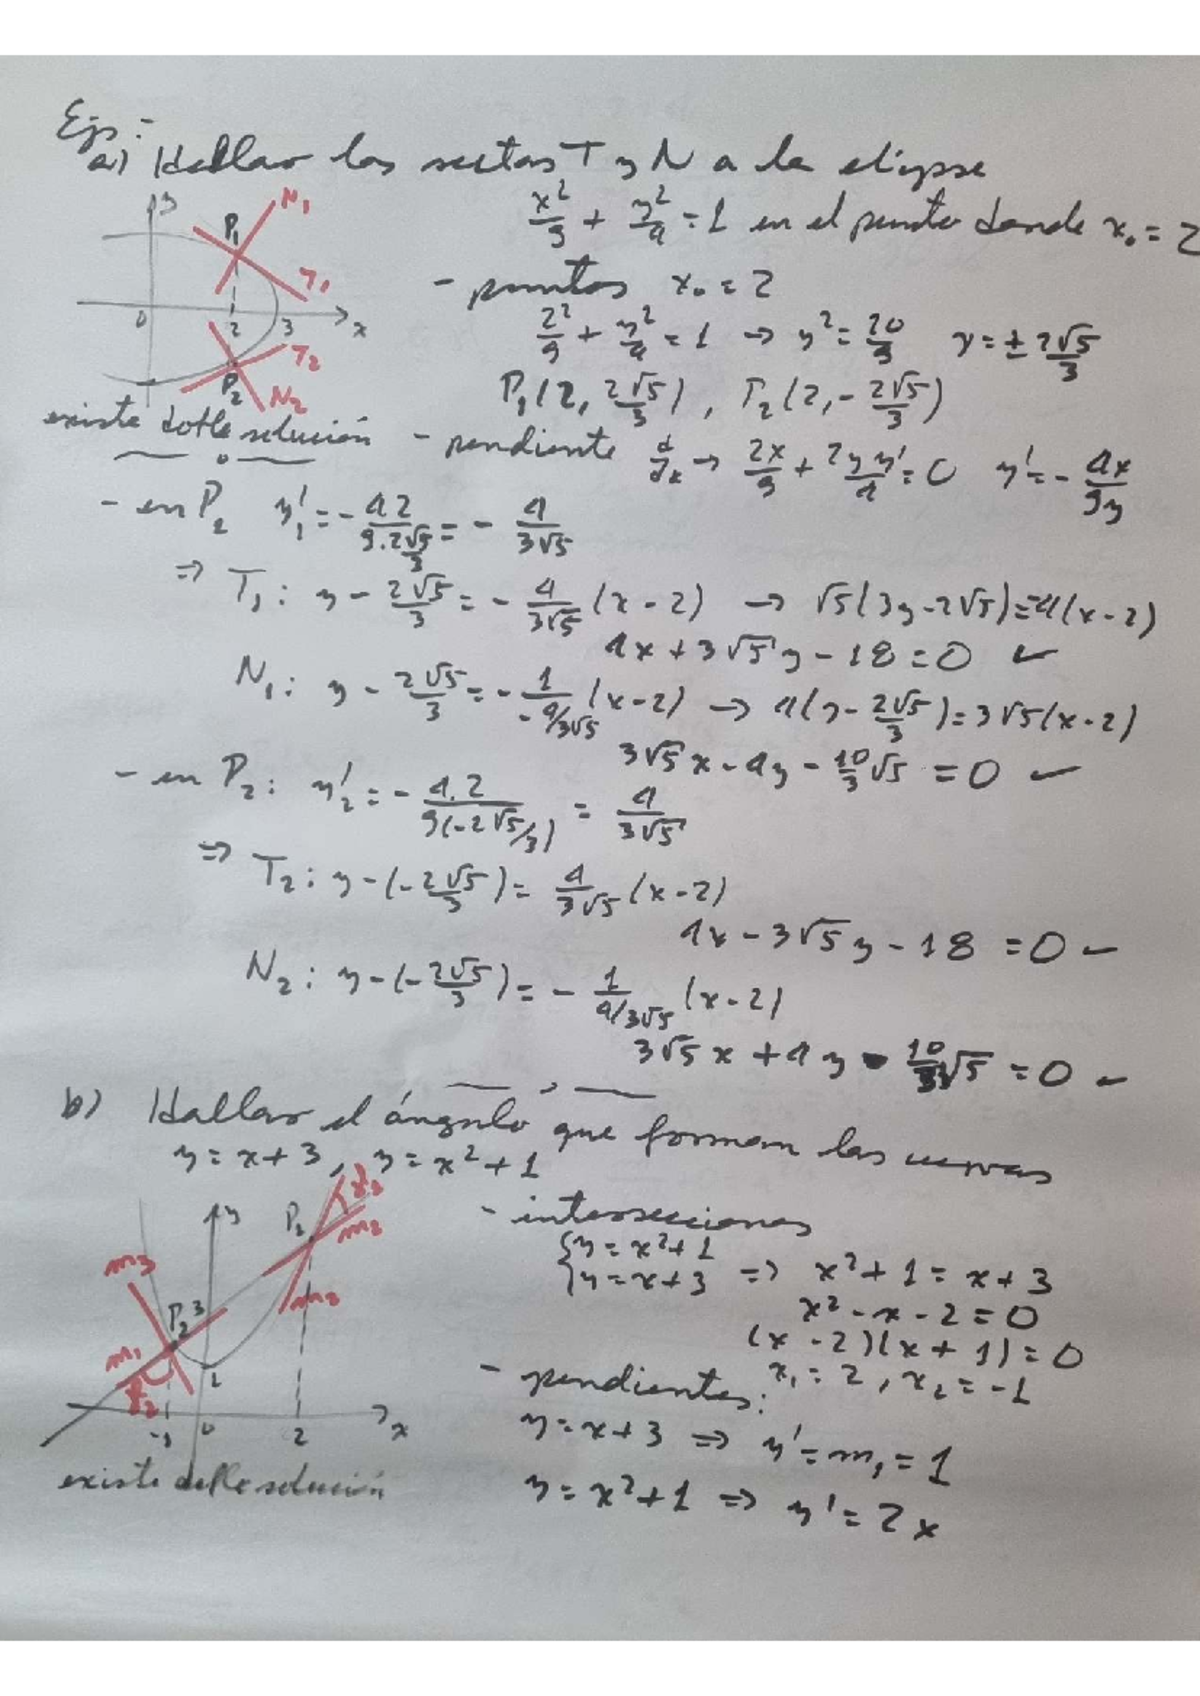 Ejs:
a) Hallar las rectas T y N a la elipse
x²/9 + y²/4 = 1 en el punto donde x₀ = 2
y N₁ P₁ T₁ 0 2 3 x T₂ P₂ N₂
- puntos x₀ = 2
2²/9 + y²/4 = 1 → y² = 20/9 y = ± 2√5/3
P₁(2, 2√5/3), P₂(2, -2√5/3)
existe doble solución
- pendiente d/dx → 2x/9 + 2yy'/4 = 0 y' = - 4x/9y
- en P₂ y'₁ = - 4.2/(9.2√5/3) = - 4/3√5
⇒ T₁: y - 2√5/3 = - 4/3√5 (x - 2) → √5(3y - 2√5) = -4(x - 2)
4x + 3√5 y - 18 = 0 ✓
N₁: y - 2√5/3 = - 1/(-4/3√5) (x - 2) → 4(y - 2√5/3) = 3√5(x - 2)
3√5 x - 4y - 10/3 √5 = 0 ✓
- en P₂: y'₂ = - 4.2/(9(-2√5/3)) = 4/3√5
⇒ T₂: y - (-2√5/3) = 4/3√5 (x - 2)
4x - 3√5 y - 18 = 0 ✓
N₂: y - (-2√5/3) = - 1/(4/3√5) (x - 2)
3√5 x + 4y - 10/3 √5 = 0 ✓
b) Hallar el ángulo que forman las curvas
y = x + 3, y = x² + 1
- intersecciones
{y = x² + 1
{y = x + 3 ⇒ x² + 1 = x + 3
x² - x - 2 = 0
(x - 2)(x + 1) = 0
x₁ = 2, x₂ = -1
- pendientes:
y = x + 3 ⇒ y' = m₁ = 1
y = x² + 1 ⇒ y' = 2x
y m₃ P₂ 3 m₁ 1 -1 0 2 x m₂
existe doble solución